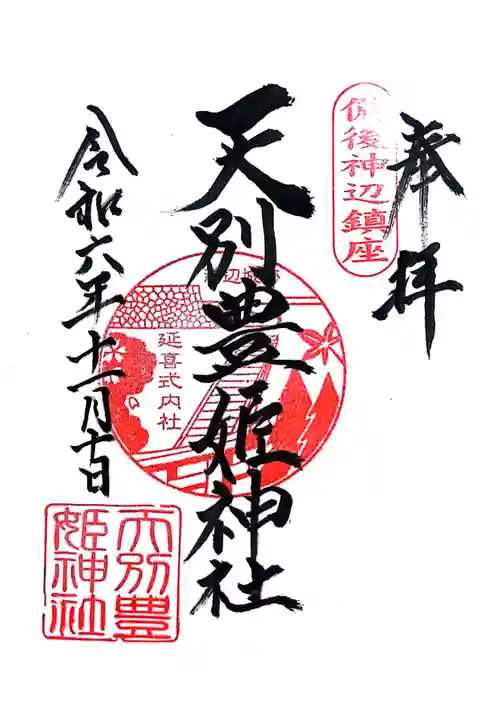 奉拝
備後神辺鎮座
天別豊姫神社
延喜式内社
令和六年十一月十日
天別豊
姫神社